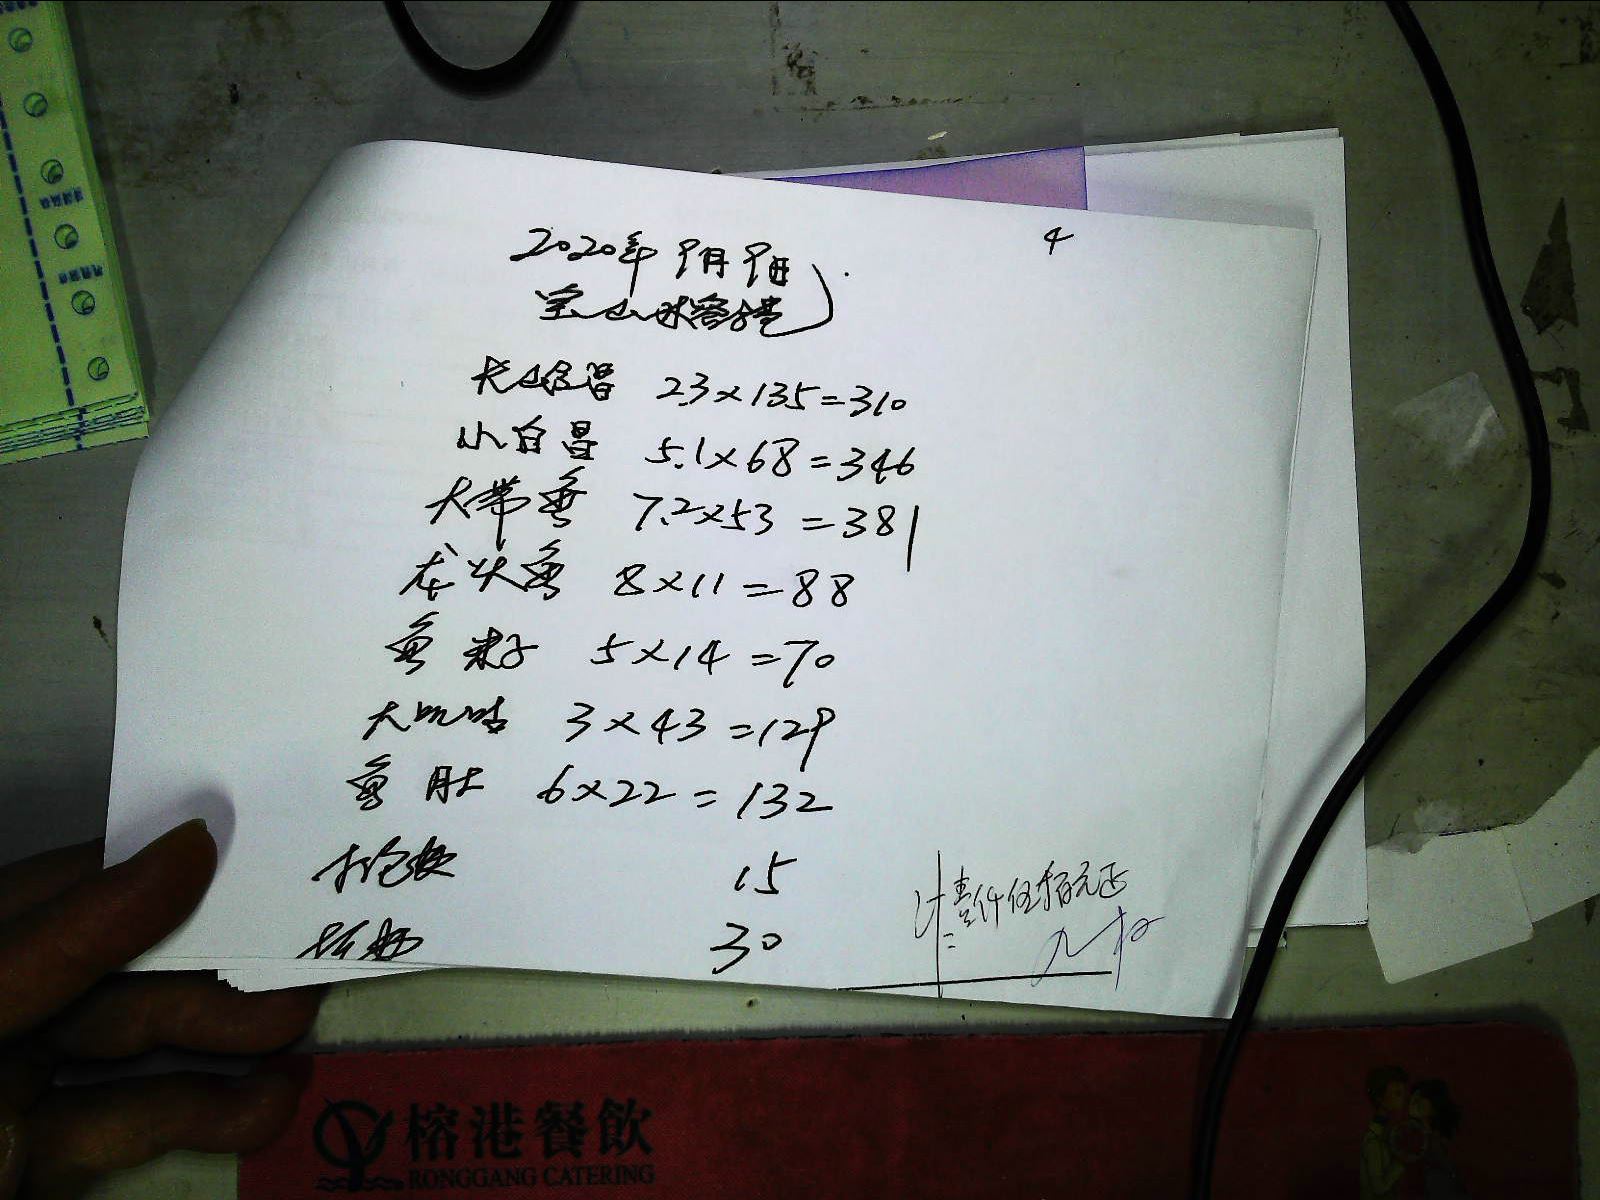 4
2020年9月9日
宝山
2.3×135=310
小白昌 5.1×68=346
大带鱼 7.2×53=381
龙头鱼 8×11=88
鱼籽 5×14=70
大 3×43=129
鱼肚 6×22=132
打包 15
30
计: 壹仟伍佰元正
榕港餐飲
RONGGANG CATERING